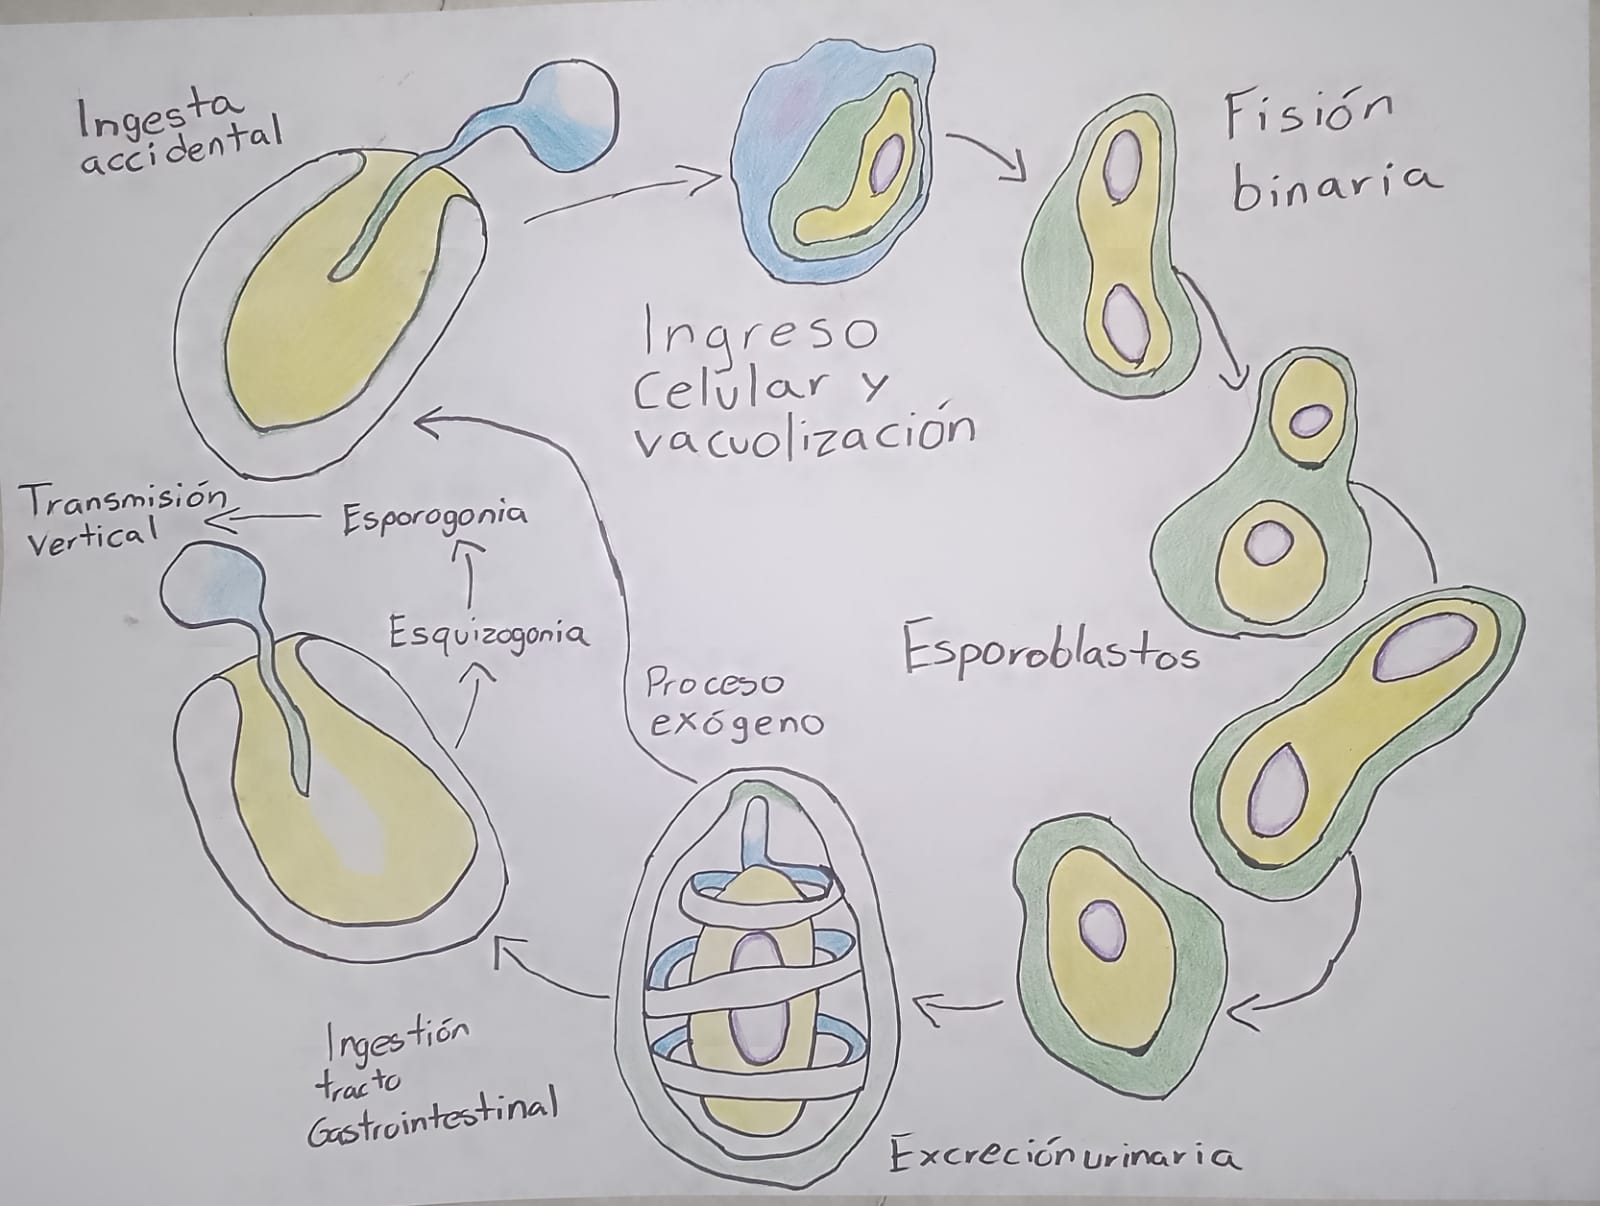 Ingesta
accidental
Fisión
binaria
Ingreso
Celular y
vacuolización
Transmisión
vertical
Esporogonia
Esquizogonia
Esporoblastos
Proceso
exógeno
Ingestión
tracto
Gastrointestinal
Excreción urinaria